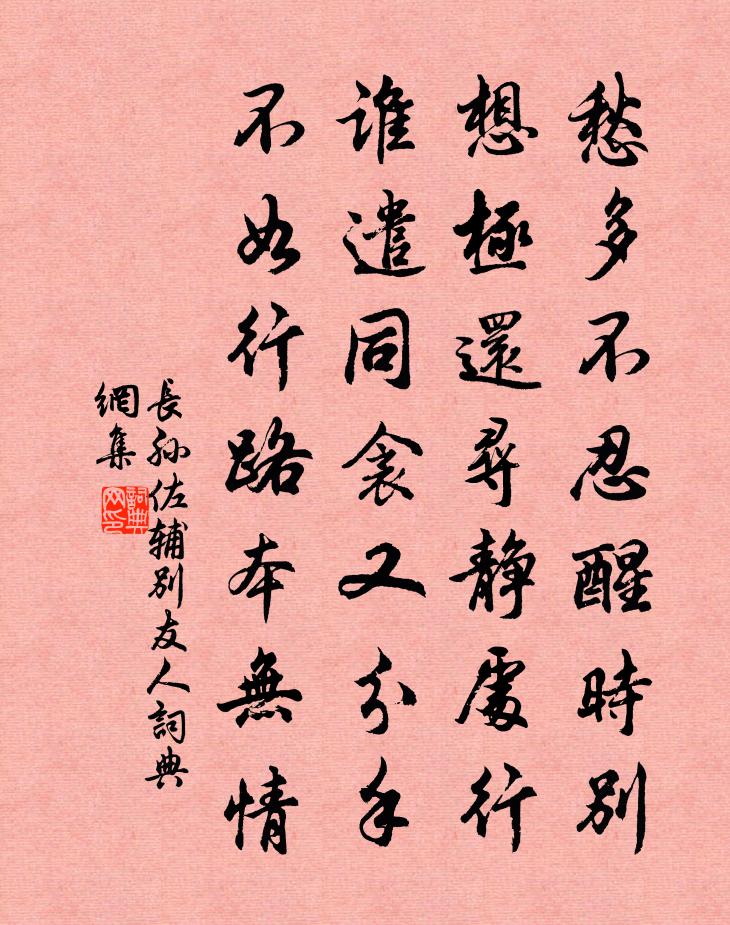 愁多不忍醒時別
想極還尋靜處行
誰遣同衾又分手
不如行路本無情
長孫佐輔別友人詞典
網集
詞典
网印